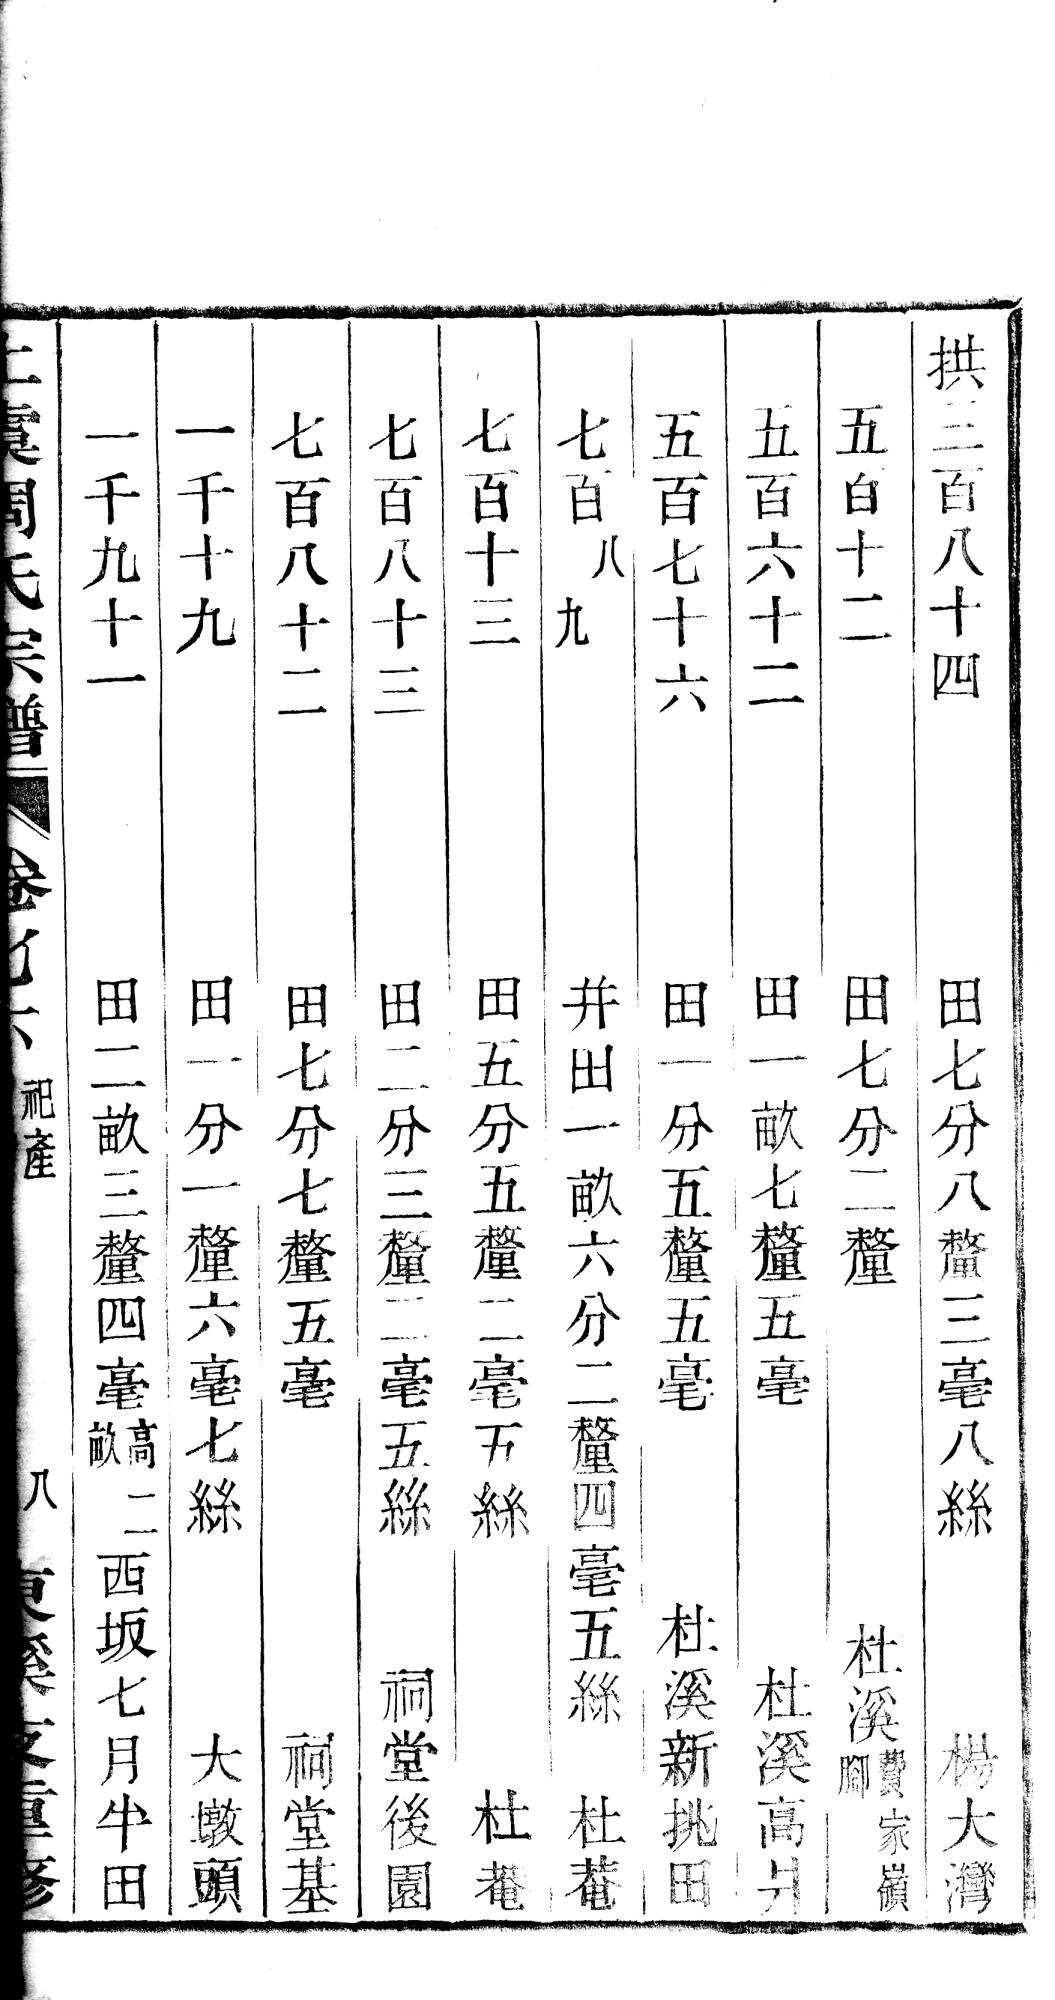 拱三百八十四 田七分八釐三毫八絲 楊大灣
五百十二 田七分二釐 杜溪費家嶺腳
五百六十二 田一畝七釐五毫 杜溪高爿
五百七十六 田一分五釐五毫 杜溪新挑田
七百八九 井田一畝六分二釐四毫五絲 杜菴
七百十三 田五分五釐二毫五絲 杜菴
七百八十三 田二分三釐二毫五絲 祠堂後園
七百八十二 田七分七釐五毫 祠堂基
一千十九 田一分一釐六毫七絲 大墩頭
一千九十一 田二畝三釐四毫高二畝西坂七月半田
上虞周氏宗譜 卷 六 祀產 八 東溪支重修